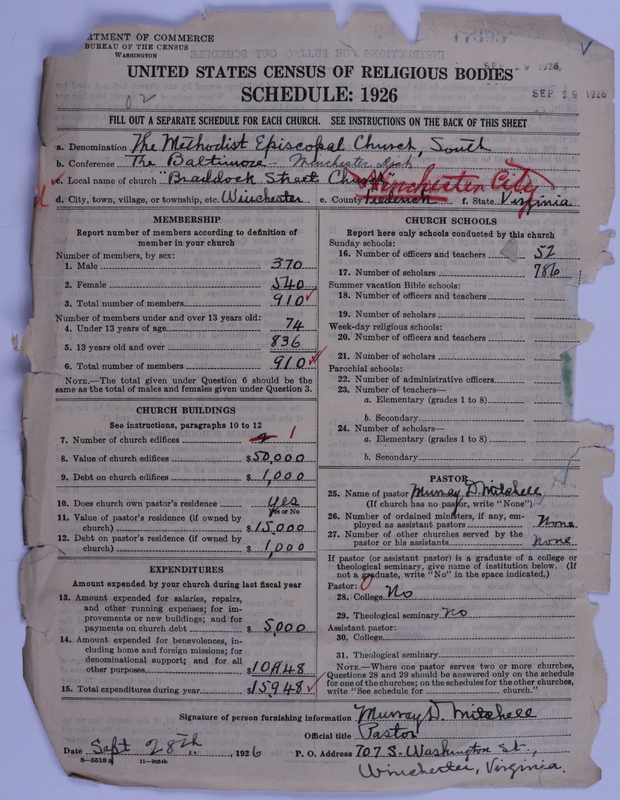 RTMENT OF COMMERCE
BUREAU OF THE CENSUS
WASHINGTON
SEP 29 1926
SEP 29 1926
UNITED STATES CENSUS OF RELIGIOUS BODIES
SCHEDULE: 1926
FILL OUT A SEPARATE SCHEDULE FOR EACH CHURCH. SEE INSTRUCTIONS ON THE BACK OF THIS SHEET
a. Denomination The Methodist Episcopal Church, South
b. Conference The Baltimore - Winchester
c. Local name of church "Braddock Street Church"
Winchester City
d. City, town, village, or township, etc. Winchester e. County Frederick f. State Virginia
MEMBERSHIP
Report number of members according to definition of member in your church
Number of members, by sex:
1. Male 370
2. Female 540
3. Total number of members 910
Number of members under and over 13 years old:
4. Under 13 years of age 74
5. 13 years old and over 836
6. Total number of members 910
NOTE.—The total given under Question 6 should be
same as the total of males and females given under Question 3.
CHURCH BUILDINGS
See instructions, paragraphs 10 to 12
7. Number of church edifices 1
8. Value of church edifices $50,000
9. Debt on church edifices $1,000
10. Does church own pastor's residence yes
Yes or No
11. Value of pastor's residence (if owned by
church) $15,000
12. Debt on pastor's residence (if owned by
church) $1,000
EXPENDITURES
Amount expended by your church during last fiscal year
13. Amount expended for salaries, repairs,
and other running expenses; for im-
provements or new buildings; and for
payments on church debt $5,000
14. Amount expended for benevolences, in-
cluding home and foreign missions; for
denominational support; and for all
other purposes $10,948
15. Total expenditures during year $15,948
CHURCH SCHOOLS
Report here only schools conducted by this church
Sunday schools:
16. Number of officers and teachers 52
17. Number of scholars 786
Summer vacation Bible schools:
18. Number of officers and teachers
19. Number of scholars
Week-day religious schools:
20. Number of officers and teachers
21. Number of scholars
Parochial schools:
22. Number of administrative officers
23. Number of teachers—
a. Elementary (grades 1 to 8)
b. Secondary
24. Number of scholars—
a. Elementary (grades 1 to 8)
b. Secondary
PASTOR
25. Name of pastor Murray D. Mitchell
(If church has no pastor, write "None")
26. Number of ordained ministers, if any, em-
ployed as assistant pastors None
27. Number of other churches served by the
pastor or his assistants None
If pastor (or assistant pastor) is a graduate of a college or
theological seminary, give name of institution below. (If
not a graduate, write "No" in the space indicated.)
Pastor: 0
28. College No
29. Theological seminary No
Assistant pastor:
30. College
31. Theological seminary
NOTE.—Where one pastor serves two or more churches,
Questions 28 and 29 should be answered only on the schedule
for one of the churches; on the schedules for the other churches,
write "See schedule for church."
Signature of person furnishing information Murray D. Mitchell
Official title Pastor
Date Sept 28th, 1926 P. O. Address 707 S. Washington St.,
8—5518a 11—905th Winchester, Virginia.